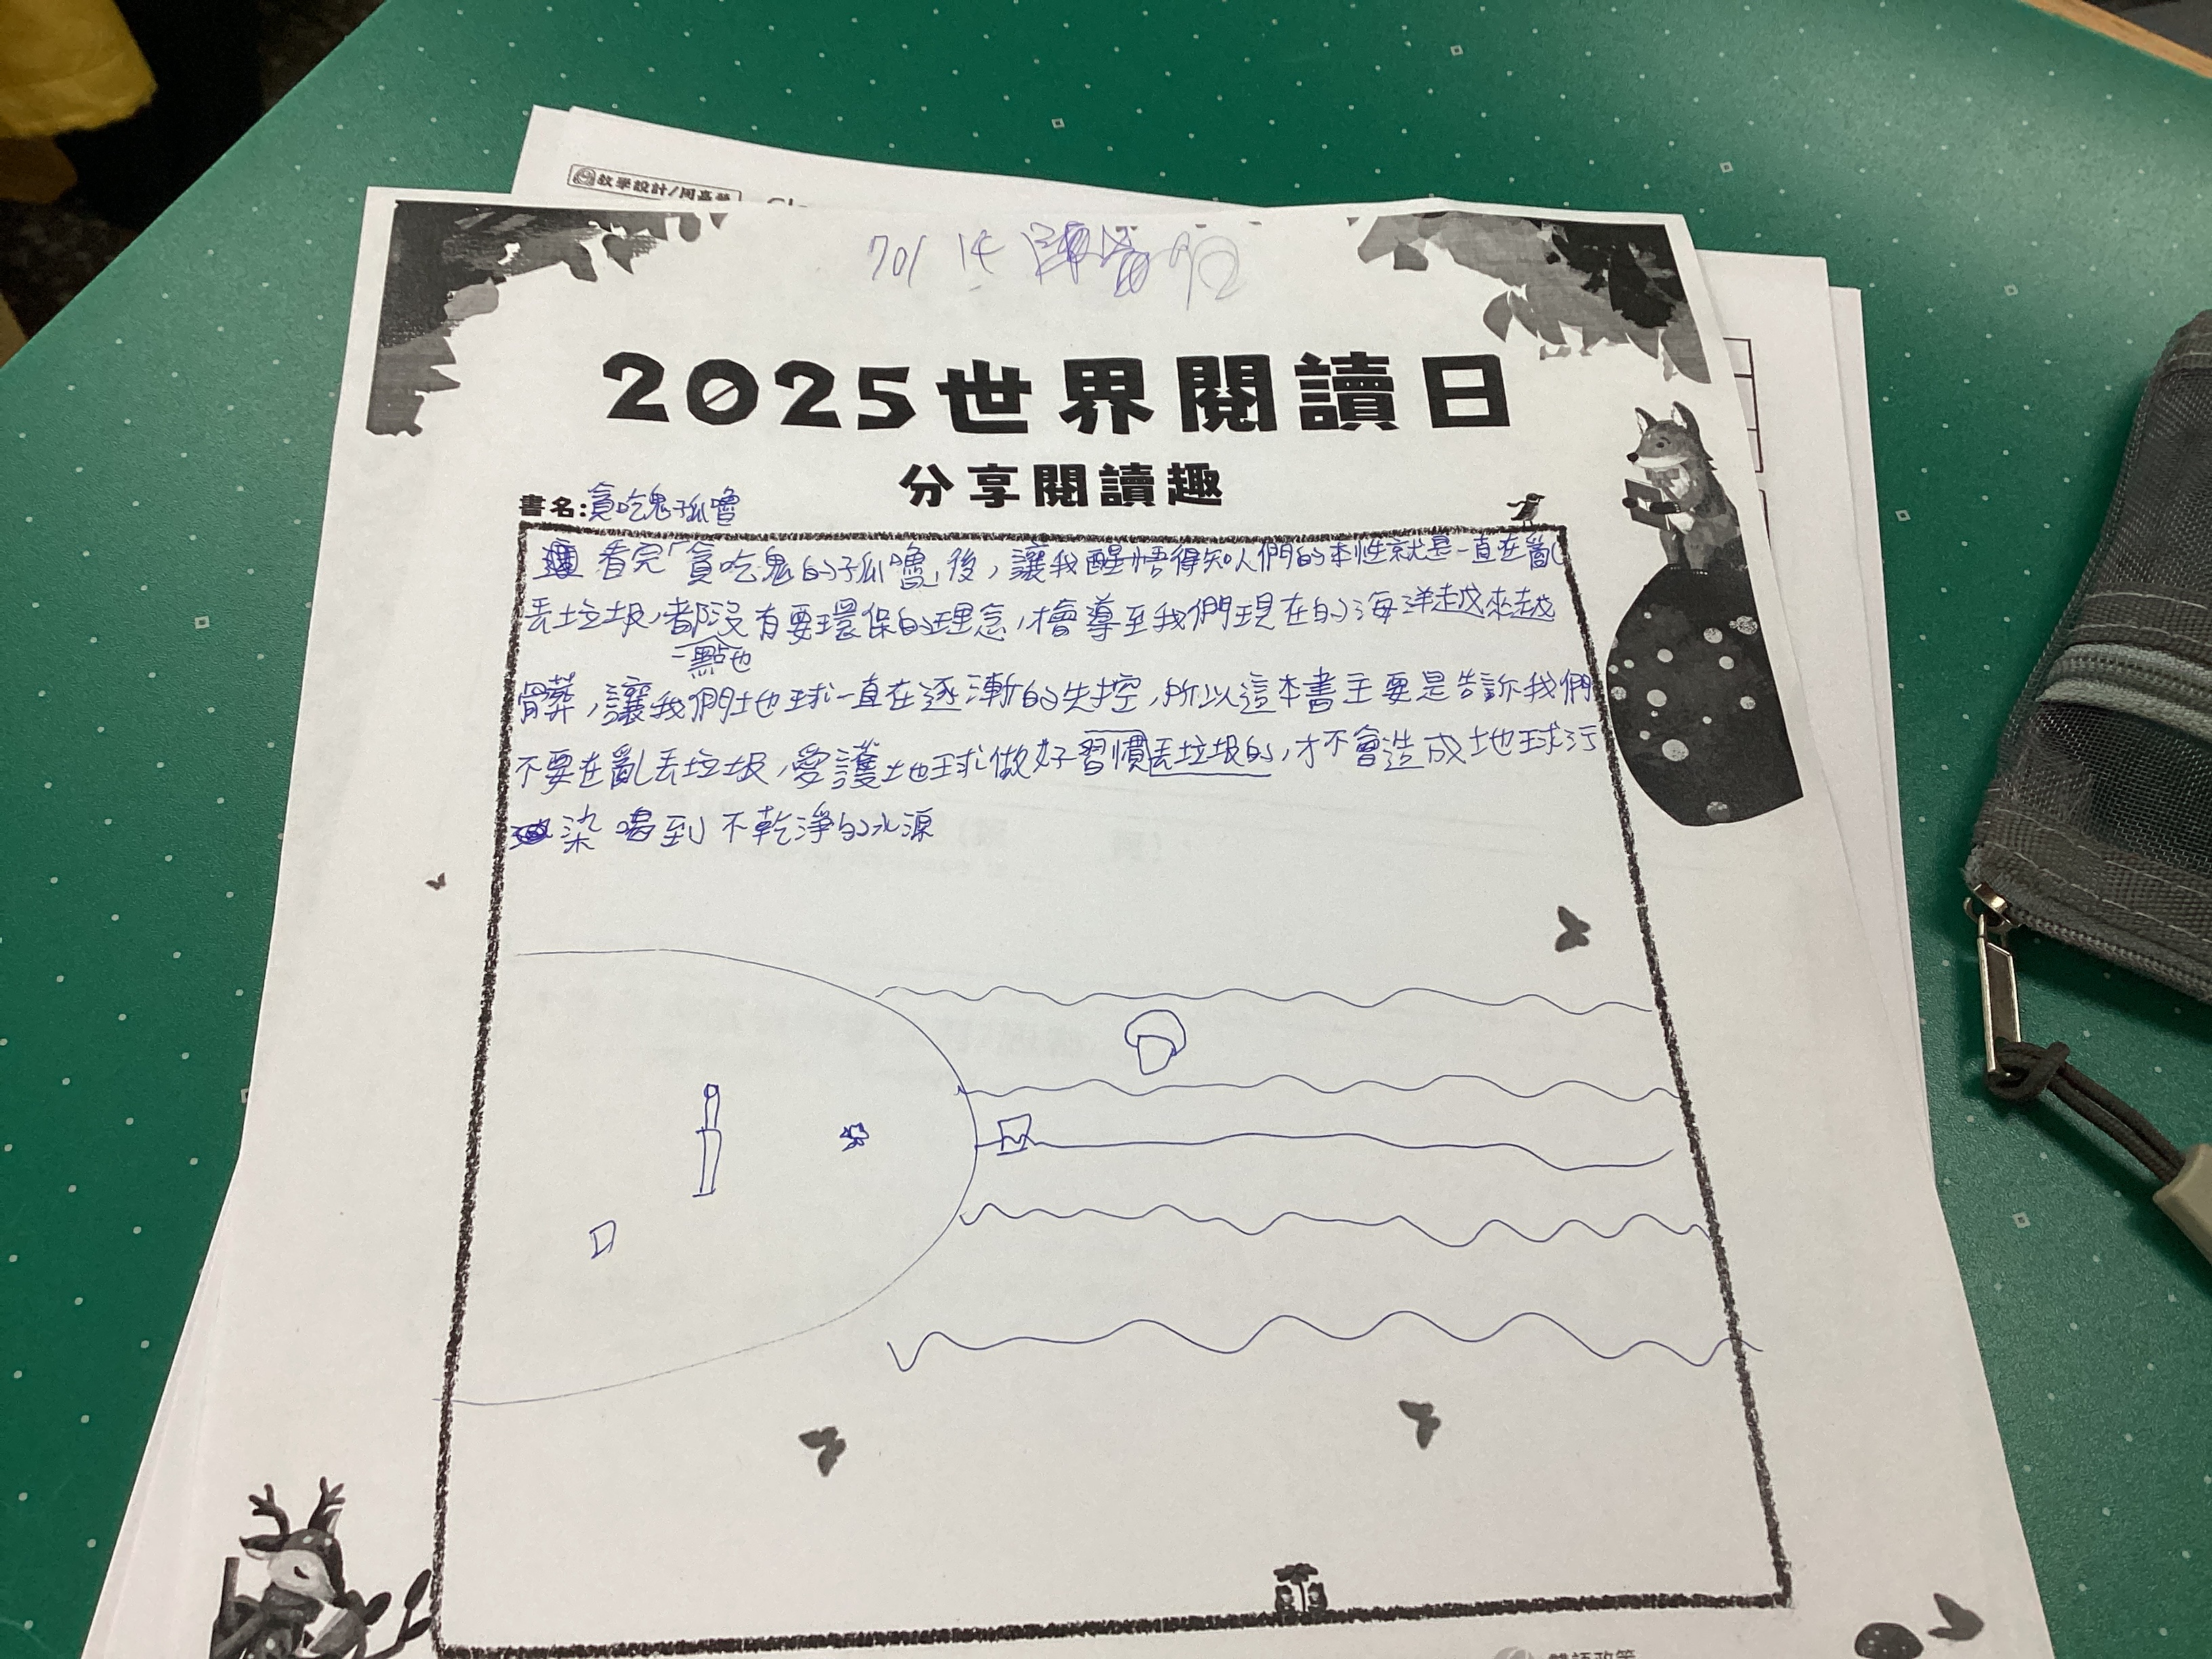 教學設計/周高
701 14 陳
2025世界閱讀日
分享閱讀趣
書名:貪吃鬼孤嚕
看完「貪吃鬼的孤嚕」後,讓我醒悟得知人們的本性就是一直在亂
丟垃圾,都沒有要環保的理念,才會導至我們現在的海洋越來越
一點也
髒,讓我們地球一直在逐漸的失控,所以這本書主要是告訴我們
不要在亂丟垃圾,愛護地球做好習慣丟垃圾的,才不會造成地球污
染 喝到 不乾淨的水源